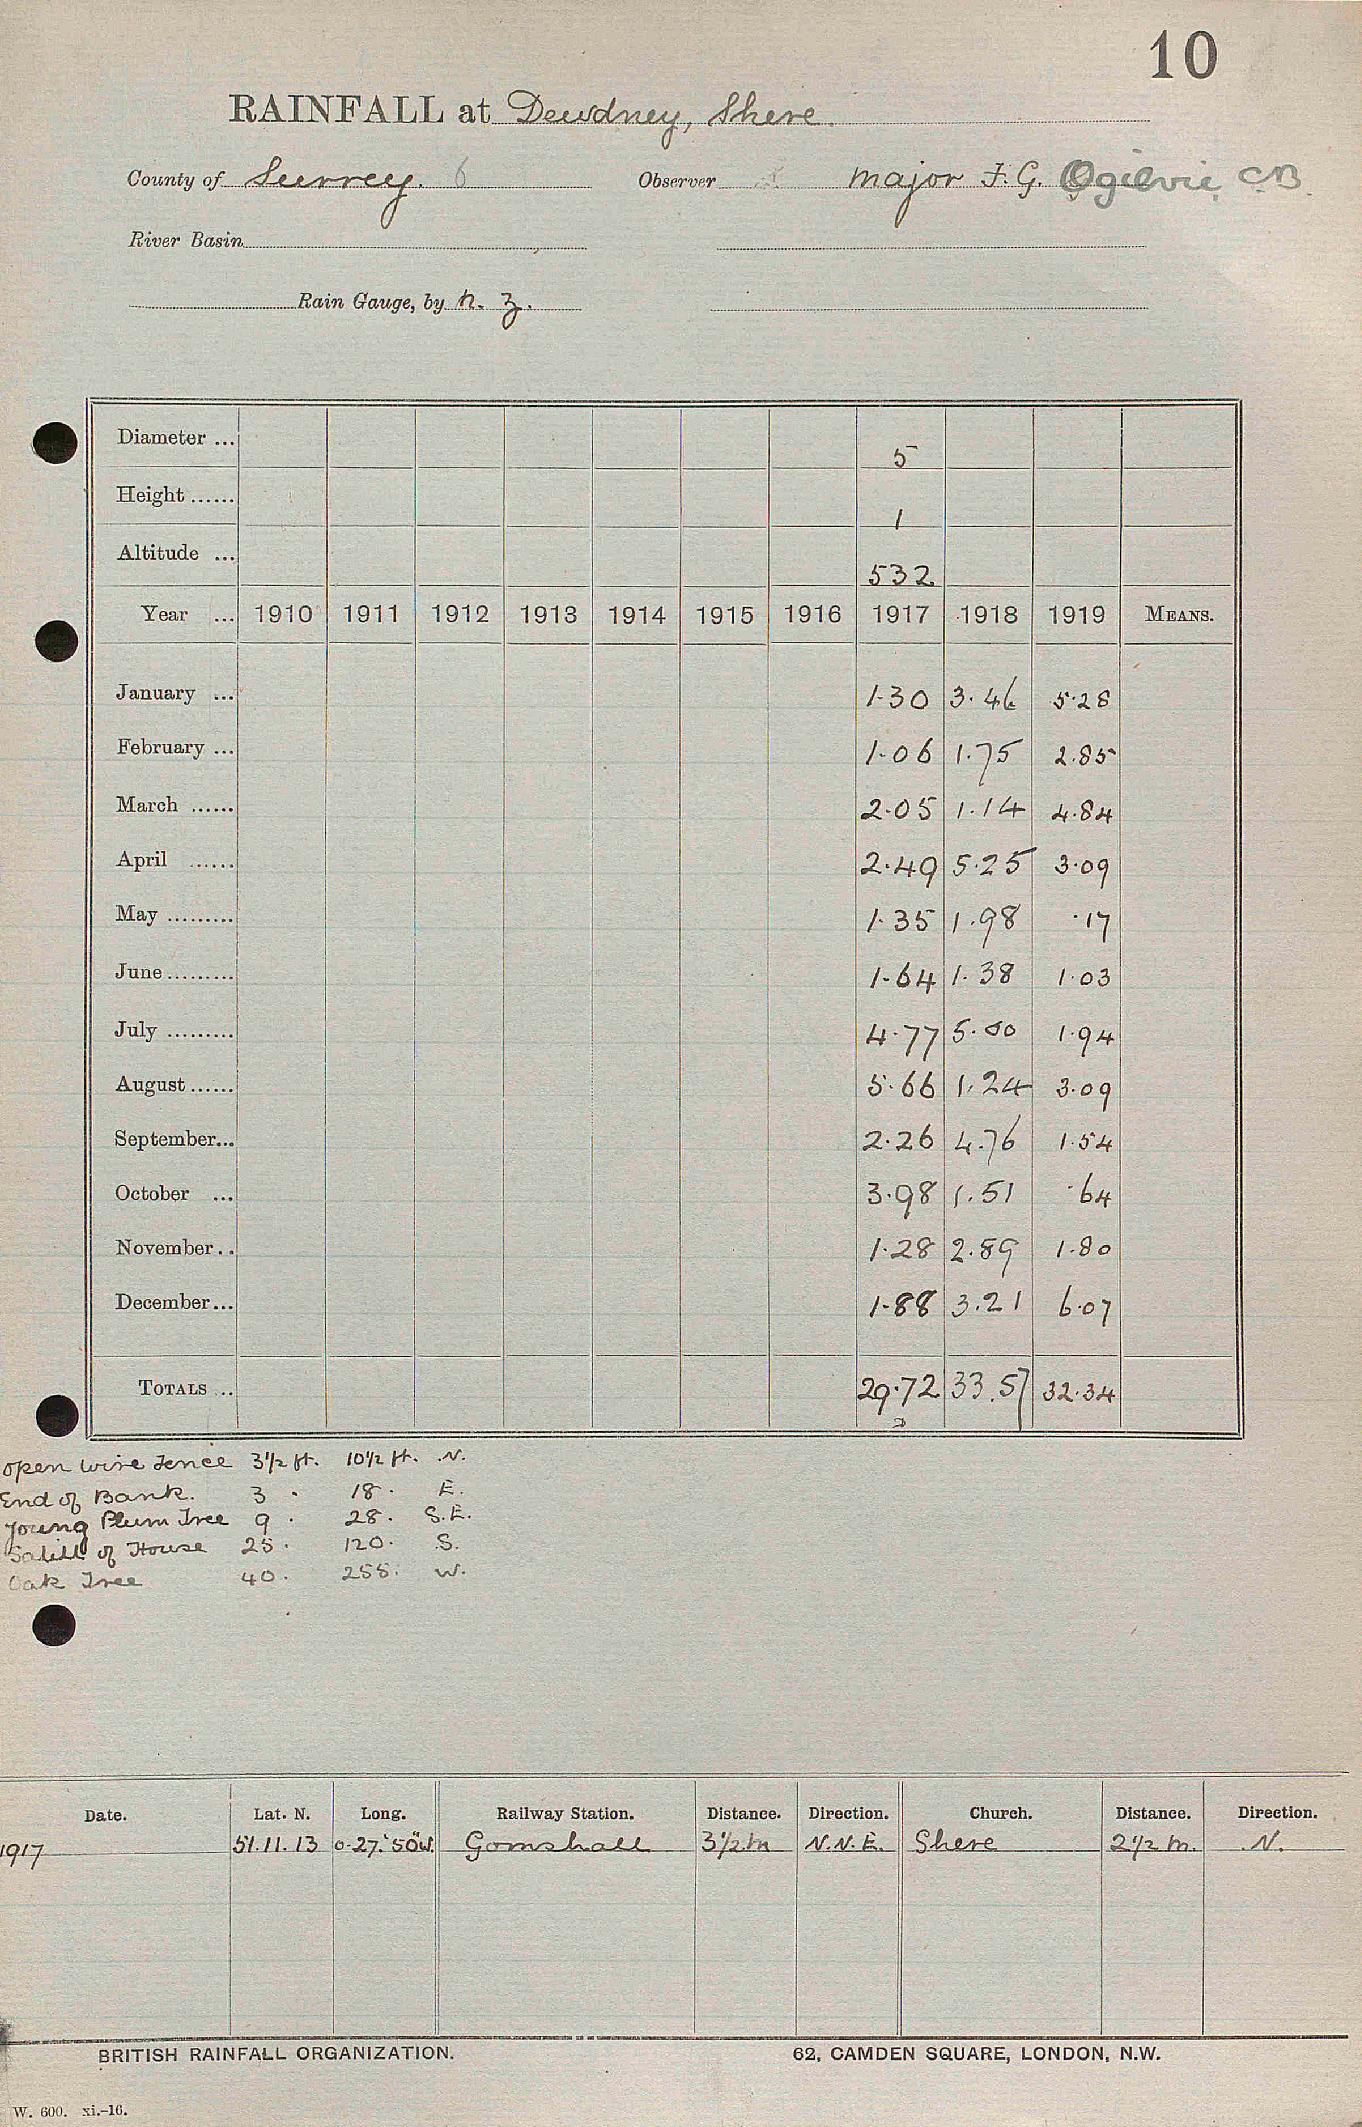 10
RAINFALL at Dewdney, Shere.
County of Surrey. 6 Observer Major F. G. Ogilvie, CB.
River Basin
Rain Gauge, by N. Z.
Diameter ... 5
Height ...... 1
Altitude ... 532
Year ... 1910 1911 1912 1913 1914 1915 1916 1917 1918 1919 MEANS.
January ... 1.30 3.46 5.28
February ... 1.06 1.75 2.85
March ...... 2.05 1.14 4.84
April ...... 2.49 5.25 3.09
May ......... 1.35 1.98 .17
June ......... 1.64 1.38 1.03
July ......... 4.77 5.00 1.94
August ...... 5.66 1.24 3.09
September... 2.26 4.76 1.54
October ... 3.98 1.51 .64
November.. 1.28 2.89 1.80
December... 1.88 3.21 6.07
TOTALS ... 29.72 33.57 32.34
Open wire Fence 3½ ft. 10½ ft. N.
End of Bank. 3 " 18 " E.
Young Plum Tree 9 " 28 " S.E.
of House 25 " 120 " S.
Oak Tree 40 " 255 " W.
Date. Lat. N. Long. Railway Station. Distance. Direction. Church. Distance. Direction.
1917 51.11.13 0.27.'50"W. Gomshall 3½ m N.N.E. Shere 2½ m. N.
BRITISH RAINFALL ORGANIZATION. 62, CAMDEN SQUARE, LONDON, N.W.
W. 600. xi.-16.